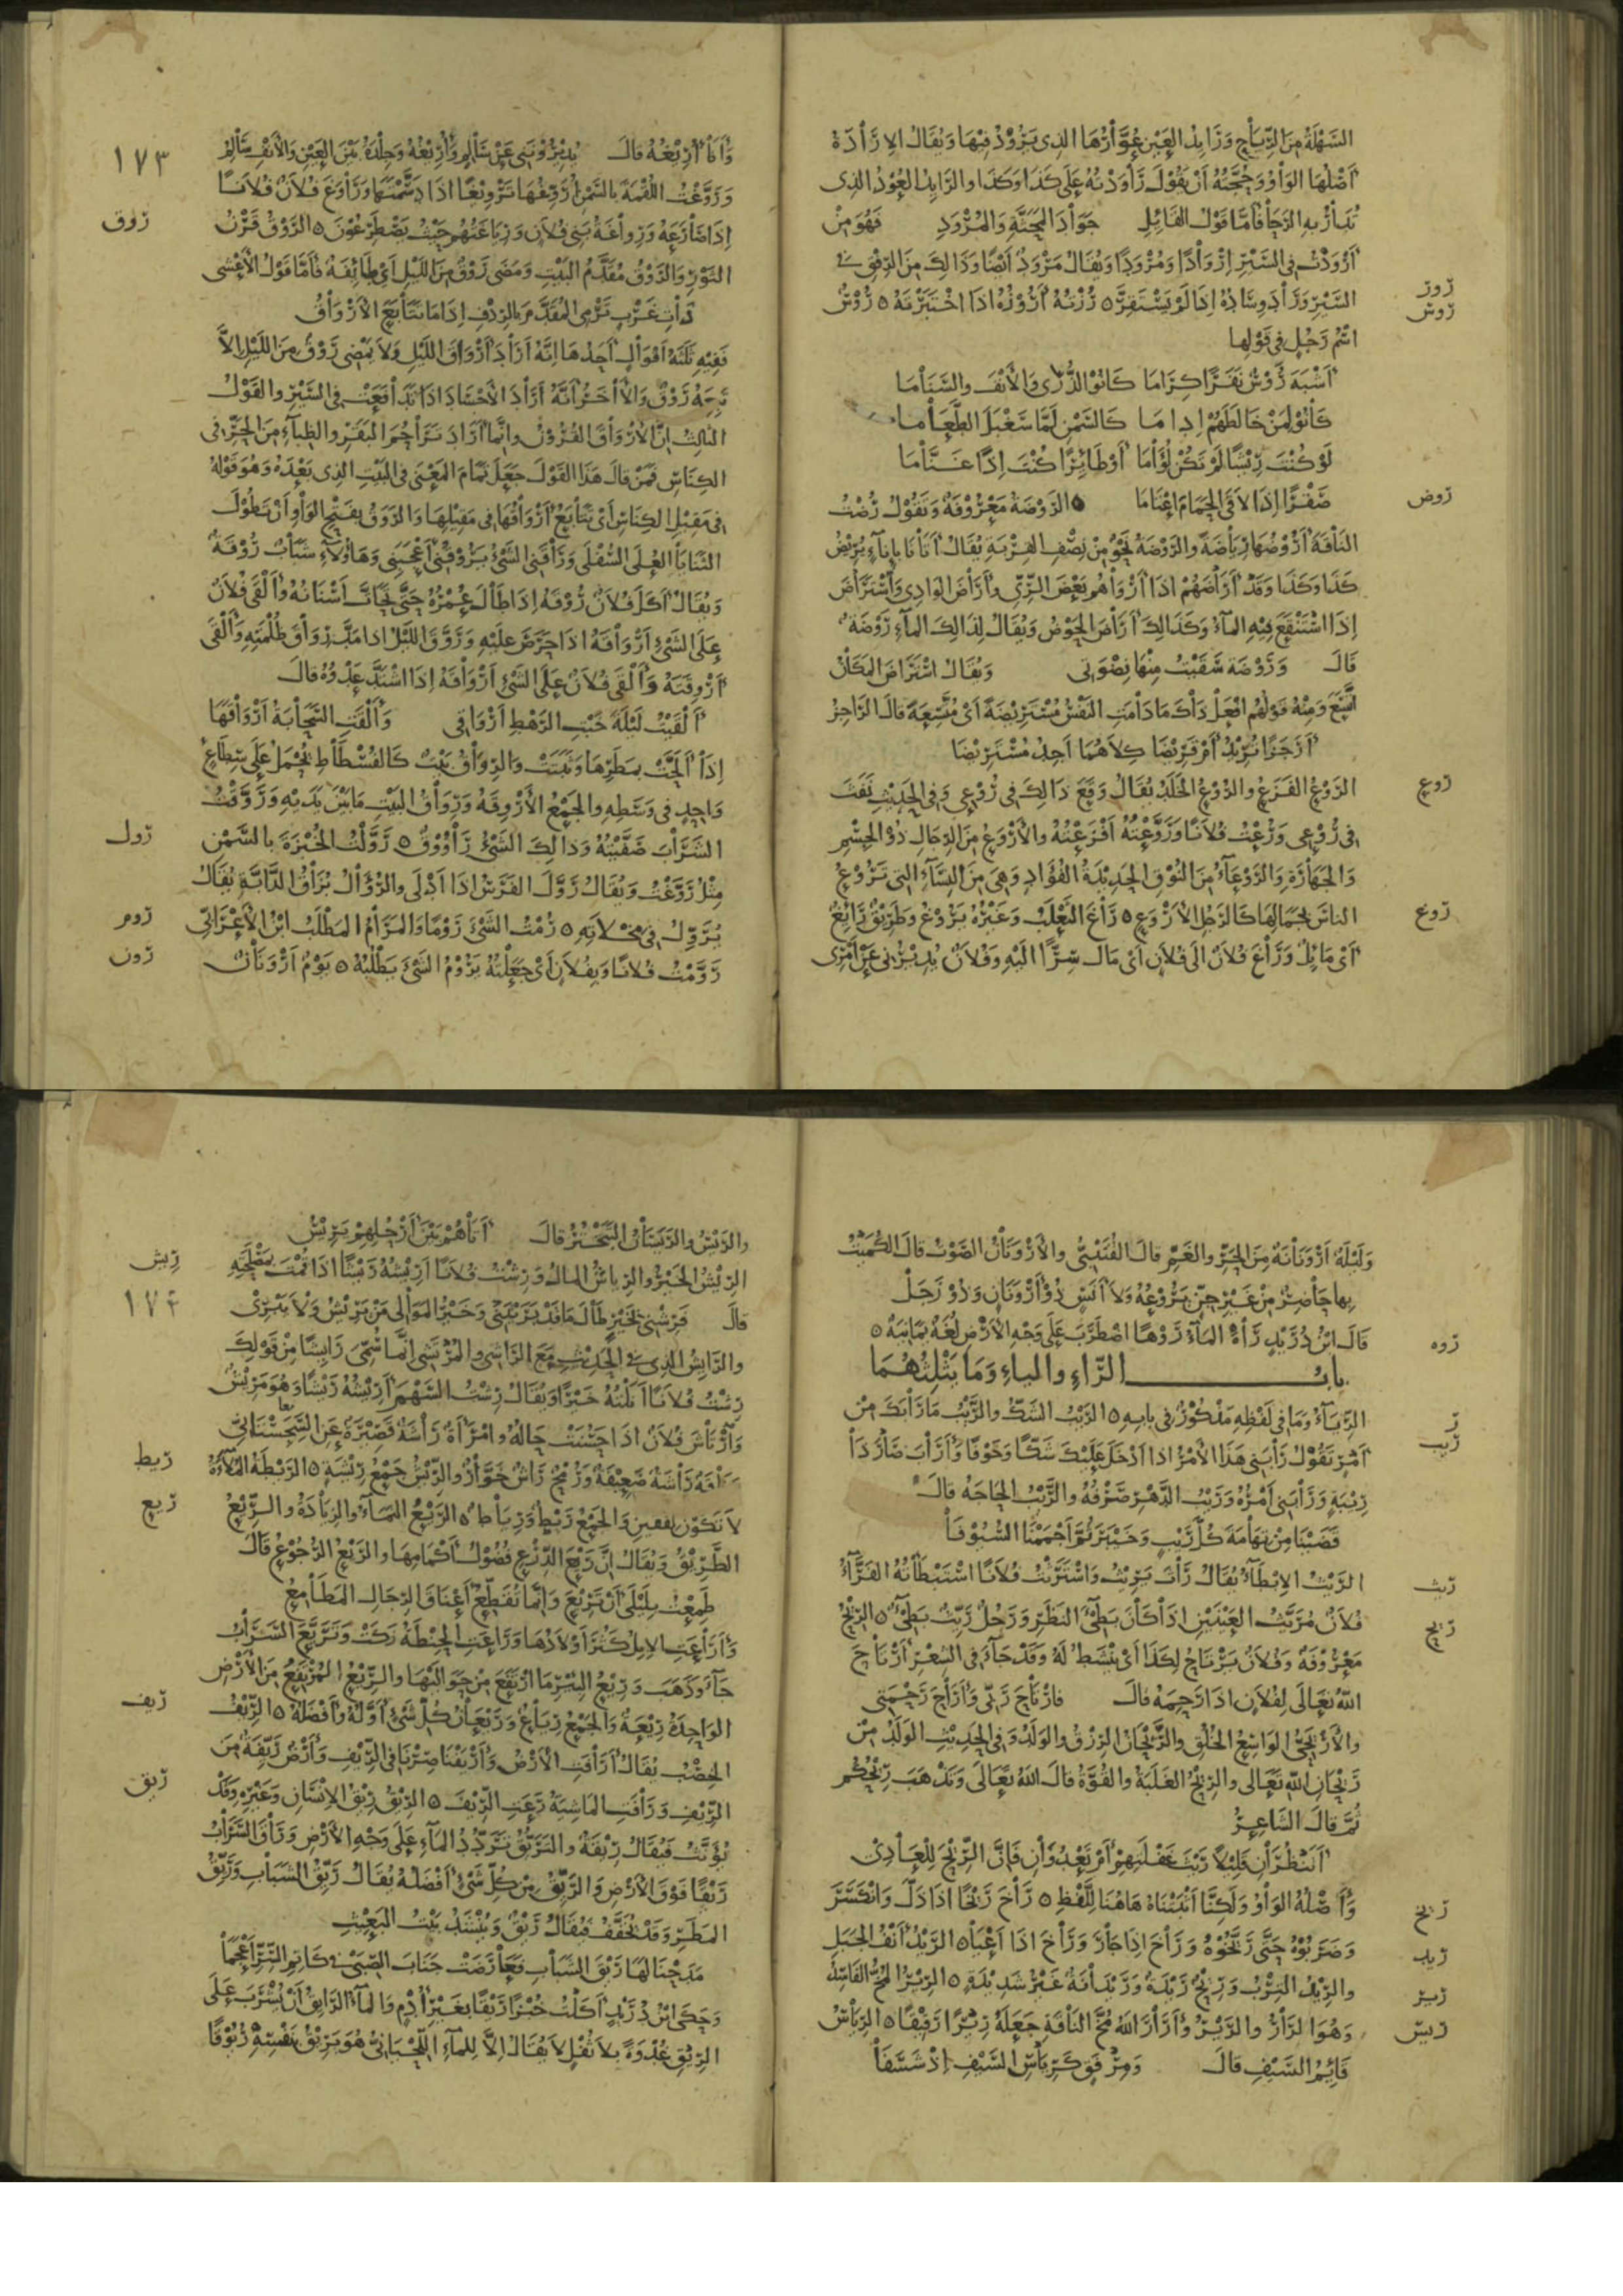 السهلة من الرياح ورايد العين عوارها الذي يرود فيها ويقال الارادة
اصلها الواو وحجته ان يقول راودته على كذا وكذا والرايد العود الذي
تدار به الرحا فاما قول القايل جواد المحثة والمرود فهو من
ارودت في السير اروادا ومرودا ويقال مرود ايضا وذالك من الرفق في
روز
السير وراد وساده اذا لم يستقر ٥ رزته اروزه اذا اختبرته ٥ روش
روش
اسم رجل في قولها
اشبه روش نفرا كراما كانوا الذرى والانف والسناما
كانوا لمن خالطهم اداما كالسمن لما سغبل الطعاما
لو كنت ريشا لم تكن لؤاما او طايرا كنت اذا عناما
روض
صقرا اذا لاقى الحمام اعتاما ٥ الروضة معروفة وتقول رضت
الناقة اروضها رياضة والروضة نحو من نصف القربة يقال اتانا باناء يريض
كذا وكذا وقد اراضهم اذا ارواهم بعض الري واراض الوادي واستراض
اذا استنقع فيه الماء وكذالك اراض الحوض ويقال لذالك الماء روضة
قال وروضة سقيت منها نضوتي ويقال استراض المكان
اتسع ومنه قولهم افعل ذاك ما دامت النفس مستريضة اي متسعة قال الراجز
ارجزا تريد ام قريضا كلاهما اجد مستريضا
روع
الروع الفزع والروع الخلد يقال وقع ذالك في روعي وفي الحديث نفث
في روعي ورعت فلانا وروعته افزعته والاروع من الرجال ذو الجسم
والجهارة والروعاء من النوق الحديدة الفؤاد وهي من النساء التي تروع
روغ
الناس بجمالها كالرجل الاروع ٥ راغ الثعلب وغيره يروغ وطريق رايغ
اي مايل وراغ فلان الى فلان اي مال سرا اليه وفلان يديرني عن امري
وانا اريغه قال يديرونني عن سالم واريغه وجلدة بين العين والانف سالم
١٧٣
وروغت اللقمة بالسمن اروغها ترويغا اذا دسمتها وراوغ فلان فلانا
روق
اذا صارعه ورواغة بني فلان ورياغتهم حيث يصطرعون ٥ الروق قرن
الثور والروق مقدم البيت ومضى روق من الليل اي طايفة فاما قول الاعشى
ذات غرب ترمي المقدم بالردف اذا ما تتابع الارواق
ففيه ثلثة اقوال احدها انه اراد ارواق الليل ولا يمضي روق من الليل الا
تبعه روق والاخر انه اراد الاجساد اذا تدافعت في السير والقول
الثالث ان الارواق القرون وانما اراد تزاحم البقر والظباء من الحر في
الكناس فمن قال هذا القول جعل تمام المعنى في البيت الذي بعده وهو قوله
في مقيل الكناس اي تتابع ارواقها في مقيلها والروق بفتح الواو ان تطول
الثنايا العلى السفلى وراقني الشي يروقني اعجبني وهاؤلاء شباب روقة
ويقال اكل فلان روقه اذا طال عمره حتى تحات اسنانه والقى فلان
على الشي ارواقه اذا حرص عليه وروق الليل اذا مد رواق ظلمته والقى
اروقته والقى فلان على الشي ارواقه اذا اشتد عدوه قال
القيت ليلة خبت الرهط ارواقي والقت السحابة ارواقها
اذا الحت بمطرها وثبتت والرواق بيت كالفسطاط يحمل على سطاع
واحد في وسطه والجمع الاروقة ورواق البيت ما بين يديه وروقت
رول
الشراب صفيته وذالك الشي راووق ٥ رولت الخبزة بالسمن
مثل روغت ويقال رول الفرس اذا ادلى والروال بزاق الدابة يقال
روم
يرول في مخلاته ٥ رمت الشي روما والمرام المطلب ابن الاعرابي
رون
رومت فلانا وبفلان اي جعلته يروم الشي يطلبه ٥ يوم ارونان
وليلة ارونانة من الحر والغم قال القتيبي والارونان الصوت قال الكميت
بها حاضر من غير جن يروعه ولا انس ذو ارونان وذو زجل
روه
قال ابن دريد راه الماء روها اضطرب على وجه الارض لغة يمانية ٥
باب الراء والياء وما يثلثهما
ر
الرياء وما في لفظه مذكور في بابه ٥ الريب الشك والريب ما رابك من
ريب
امر تقول رابني هذا الامر اذا ادخل عليك شكا وخوفا واراب صار ذا
ريبة ورابني امره وريب الدهر صرفه والريب الحاجة قال
قضينا من تهامة كل ريب وخيبر ثم اجممنا السيوفا
ريث
الريث الابطاء يقال راث يريث واسترثت فلانا استبطاته الفراء
ريح
فلان مريث العينين اذا كان بطيء النظر ورجل ريث بطيء ٥ الريح
معروفة وفلان يرتاح لكذا اي ينشط له وقد جاء في الشعر ارتاح
الله تعالى لفلان اذا رحمه قال فارتاح ربي واراح رحمتي
والاريحي الواسع الخلق والريحان الرزق والولد وفي الحديث الولد من
ريحان الله تعالى والريح الغلبة والقوة قال الله تعالى وتذهب ريحكم
ثم قال الشاعر
اتنظران قليلا ريث غفلتهم ام تعدوان فان الريح للعادي
ريخ
واصله الواو ولكنا اثبتناه هاهنا للفظ ٥ راخ ريخا اذا ذل وانكسر
ريد
وضربوه حتى ريخوه وراخ اذا جار وراخ اذا اعيا ٥ الريد انف الجبل
رير
والريد الترب وريح ريدة وريدانة غير شديدة ٥ الرير المخ الفاسد
ريس
وهو الرار والرير وارار الله مخ الناقة جعله ريرا رقيقا ٥ الرياس
قايم السيف قال ومرفق كرياس السيف اذ شسفا
والريس والريسان التبختر قال اتاهم بين ارحلهم يريس
ريش
الريش الخير والرياش المال ورشت فلانا اريشه ريشا اذا قمت بمصلحته
١٧٤
قال فرشني بخير طال ما قد بريتني وخير الموالي من يريش ولا يبري
والرايش الذي في الحديث مع الراشي والمرتشي انما سمي رايشا من قولك
رشت فلانا انلته خيرا ويقال رشت السهم اريشه ريشا وهو مريش
وارتاش فلان اذا حسنت حاله وامراة راشة قصيرة عن السجستاني
ريط
وناقة راشة ضعيفة ورمح راش خوار والريش جمع ريشة ٥ الريطة الملاءة
ريع
لا تكون لفقين والجمع ريط ورياط ٥ الريع النماء والزيادة والريع
الطريق ويقال ان ريع الدرع فضول اكمامها والريع الرجوع قال
طمعت بليلى ان تريع وانما تقطع اعناق الرجال المطامع
واراعت الابل كثر اولادها وراعت الحنطة زكت وتريع السراب
جاء وذهب وريع البئر ما ارتفع من حواليها والريع المرتفع من الارض
ريف
الواحدة ريعة والجمع رياع وريعان كل شيء اوله وافضله ٥ الريف
الخصب يقال ارافت الارض واريفنا صرنا في الريف وارض ريفة من
ريق
الريف ورافت الماشية رعت الريف ٥ الريق ريق الانسان وغيره وقد
يؤنث فيقال ريقة والتريق تردد الماء على وجه الارض وراق السراب
ريقا فوق الارض والريق من كل شيء افضله يقال ريق الشباب وريق
المطر وقد يخفف فيقال ريق وينشد بيت البعيث
مدحنا لها ريق الشباب فعارضت جناب الصبى في كاتم السر اعجما
وحكى ابن دريد اكلت خبزا ريقا بغير ادم والماء الرايق ان يشرب على
الريق غدوة بلا ثفل لا يقال الا للماء اللحياني هو يريق بنفسه ريوقا